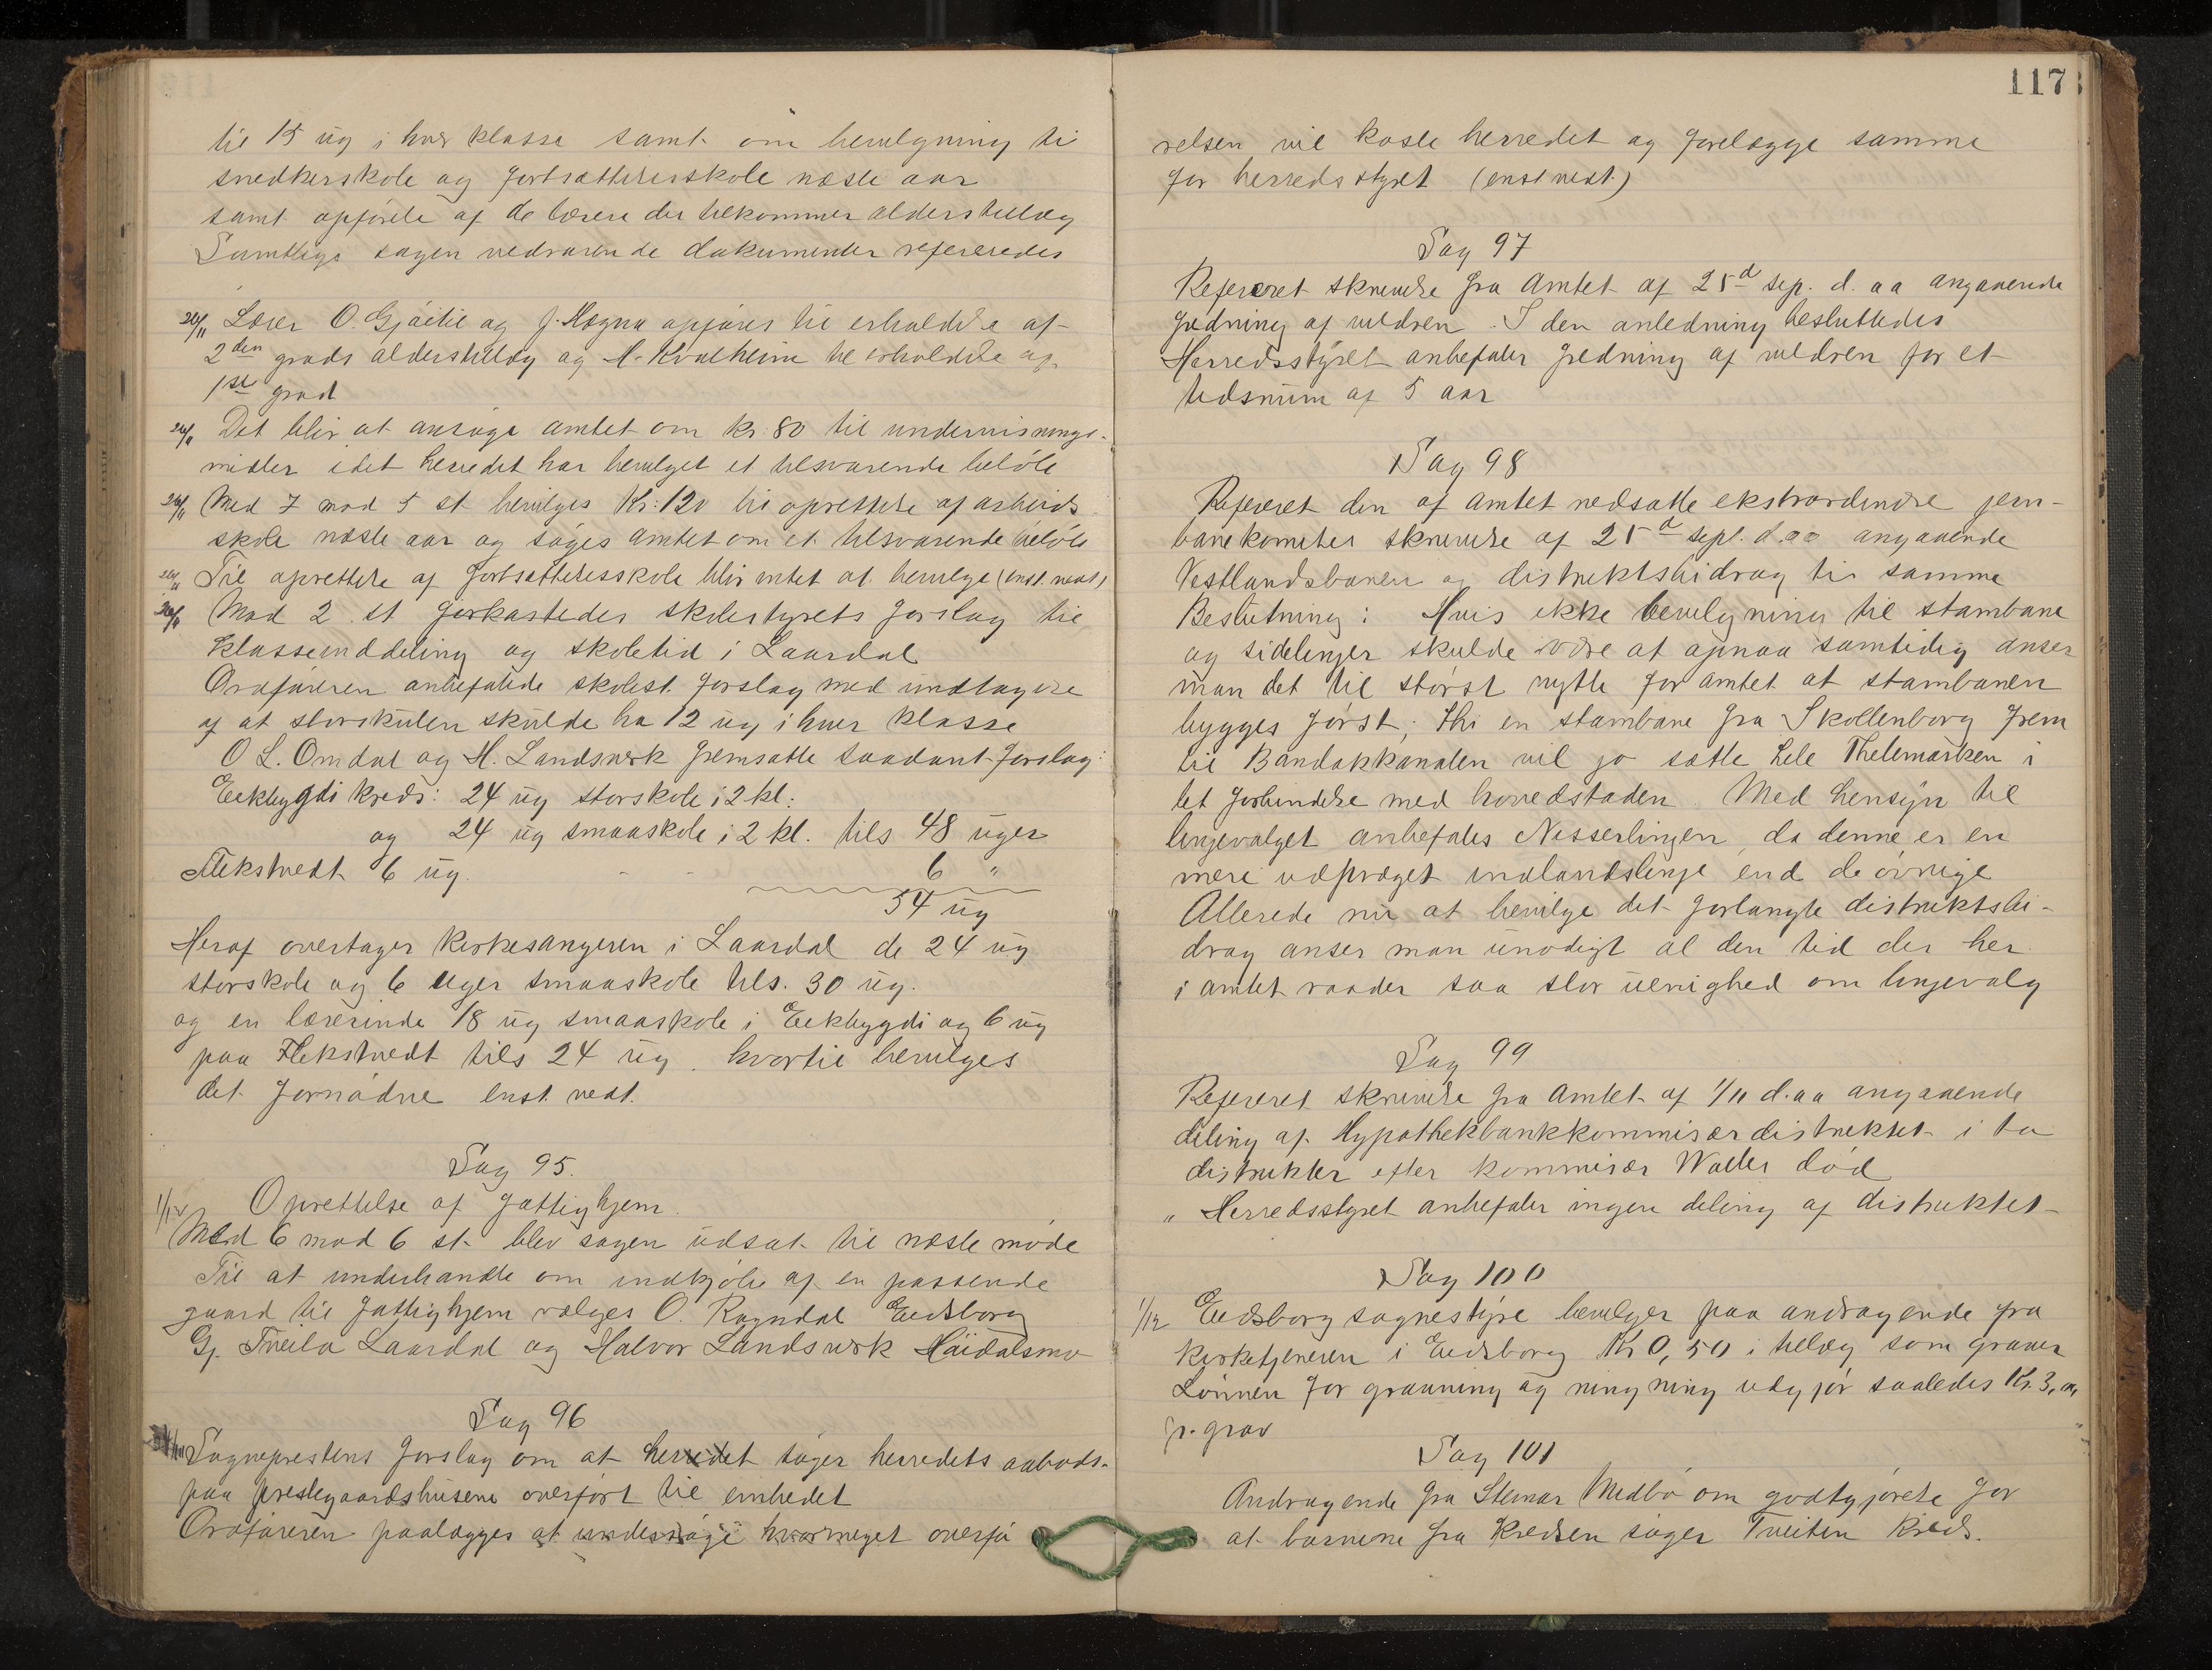 til 15 ug i hver klasse samt om bevilgning til
snedkerskole og fortsættelsesskole næste aar
samt opførelse af de lærere der tilkommer alderstillæg
Samtlige sagen vedrørende dokumenter refereredes
20/11 Lærer O. Gjøitil og J. Høgna opføres til erholdelse af
2den grads alderstillæg og H. Kvalheim til erholdelse af
1ste grad
20/11 Det blir at ansøge amtet om kr. 80 til undervisnings-
midler idet herredet har bevilget et tilsvarende beløb
20/11 Med 7 mod 5 st bevilges Kr. 120 til oprettelse af arbeids
skole næste aar og søges amtet om et tilsvarende beløb
20/11 Til oprettelse af fortsættelsesskole blir intet at bevilge (enst. vedt.)
20/11 Mod 2 st forkastedes skolestyrets forslag til
klasseinddeling og skoletid i Laardal
Ordføreren anbefalede skolest. forslag med undtagelse
af at storskulen skulde ha 12 ug i hver klasse
O L. Omdal og H. Landsverk fremsatte saadant forslag:
Eekbygdi kreds: 24 ug storskole i 2 kl.
og 24 ug smaaskole i 2 kl. tils 48 uger
Flekstvedt 6 ug. - - 6 "
54 ug
Heraf overtager kirkesangeren i Laardal de 24 ug
storskole og 6 uger smaaskole tils. 30 ug.
og en lærerinde 18 ug smaaskole i Eekbygdi og 6 ug
paa Flekstvedt tils 24 ug. hvortil bevilges
det fornødne enst. vedt.
Sag 95.
1/12 Oprettelse af fattighjem.
Med 6 mod 6 st. blev sagen udsat til næste møde
Til at underhandle om indkjøb af en passende
gaard til fattighjem vælges O. Rogndal Eidsborg
Gj. Tveito Laardal og Halvor Landsverk Høidalsmo
Sag 96
Sogneprestens forslag om at herredet søger herredets aabods-
paa prestegaardshusene overført til embedet
Ordføreren paalægges at undersøge hvormeget overfø
117
relsen vil koste herredet og forelægge samme
for herredsstyret (enst vedt.)
Sag 97
Refereret skrivelse fra Amtet af 25d sep. d. aa angaaende
fredning af rældren. I den anledning besluttedes
Herredsstyret anbefaler fredning af rældren for et
tidsrum af 5 aar
Sag 98
Refereret den af amtet nedsatte ekstraordinære jern-
banekomites skrivelse af 25d sept. d. aa angaaende
Vestlandsbanen og distriktsbidrag til samme
Beslutning: Hvis ikke bevilgning til stambane
og sidelinjer skulde være at opnaa samtidig anser
man det til størst nytte for amtet at stambanen
bygges først; thi en stambane fra Skollenborg frem
til Bandakkanalen vil jo sætte hele Thelemarken i
let forbindelse med hovedstaden. Med hensyn til
linjevalget anbefales Nisserlinjen, da denne er en
mere udpræget indlandslinje end de øvrige
Allerede nu at bevilge det forlangte distriktsbi-
drag anser man unødigt al den tid der her
i amtet raader saa stor uenighed om linjevalg
Sag 99
Refereret skrivelse fra Amtet af 1/11 d. aa angaaende
deling af Hypothekbankkommisærdistriktet i to
distrikter efter kommisær Walles død
" Herredsstyret anbefaler ingen deling af distriktet
Sag 100
1/12 Eidsborg sognestyre bevilger paa andragende fra
kirketjeneren i Eidsborg Kr 0,50 i tillæg som graver
Lønnen for gravning og ringning udgjør saaledes Kr. 3,00
pr. grav
Sag 101
Andragende fra Steinar Midbø om godtgjørelse for
at barnene fra Kredsen søger Tveiten kreds.